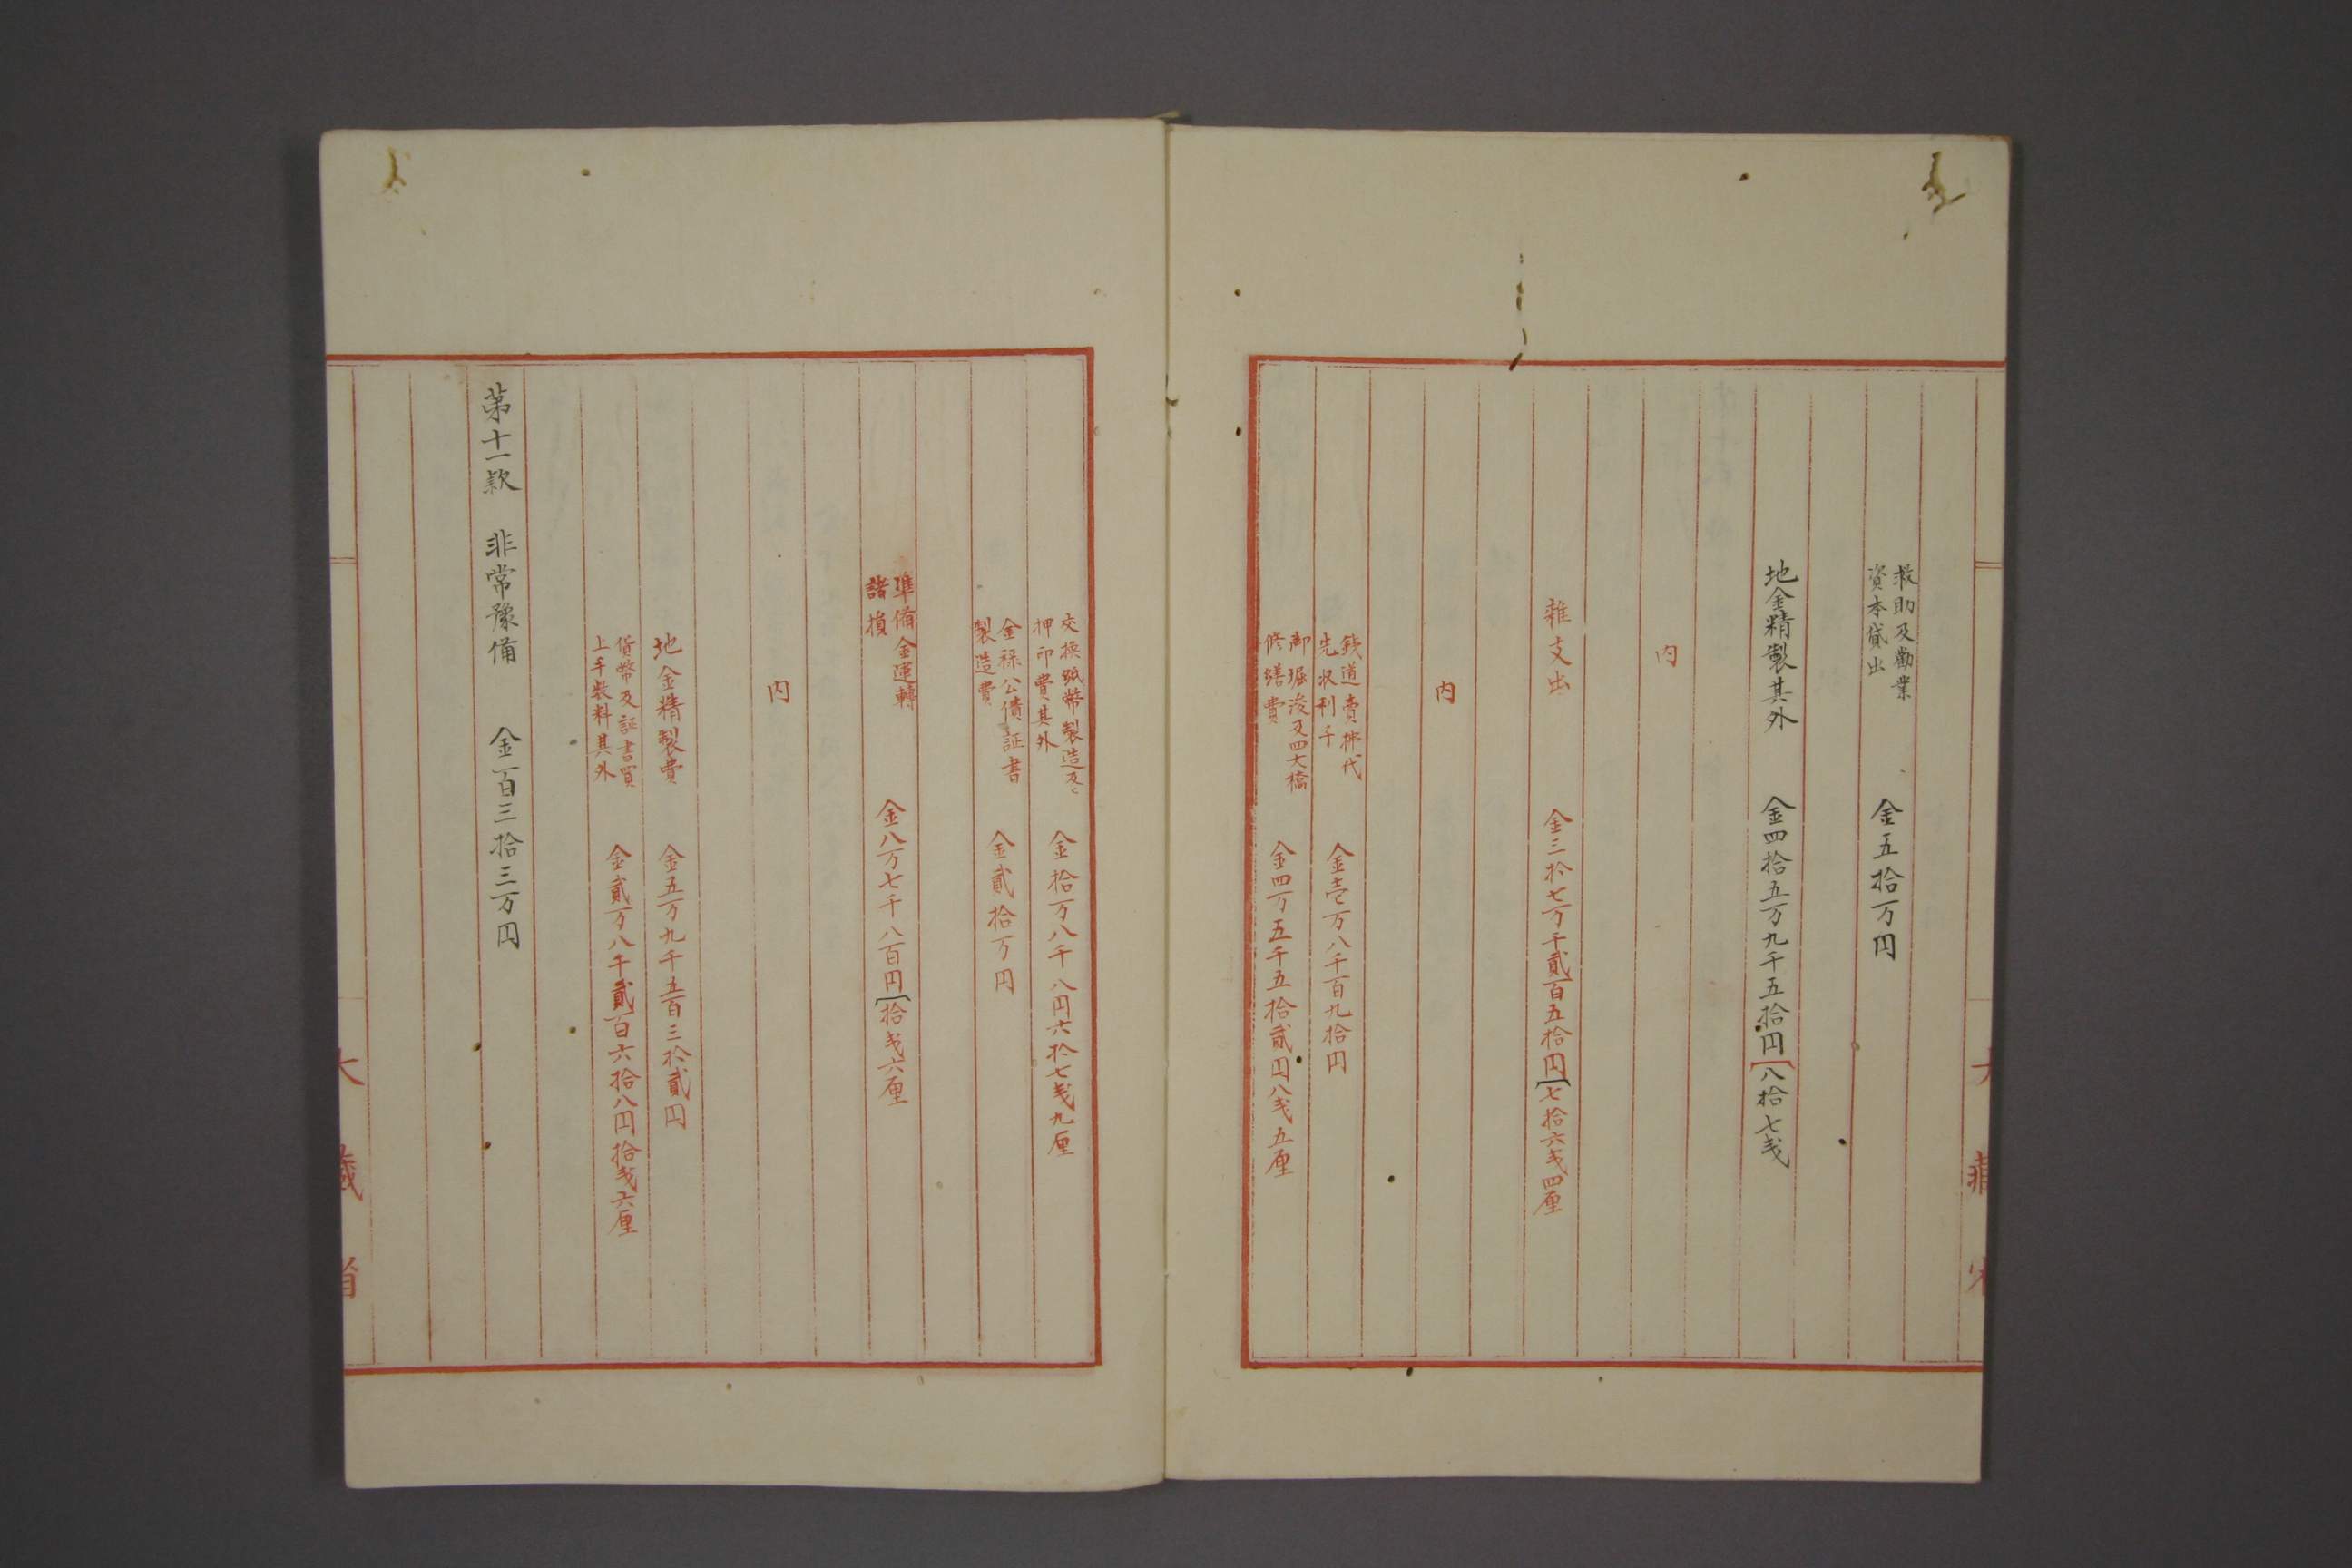 救助及勧業
資本貸出
金五拾万円
地金精製其外
金四拾五万九千五拾円
八拾七戋
内
雑支出
金三拾七万千貳百五拾円
七拾六戋四厘
内
鉄道売拂代
先収利子
金壱万八千百九拾円
御堀浚及四大橋
修繕費
金四万五千五拾貳円八戋五厘
交換紙幣製造及ヒ
押印費其外
金拾万八千八円六拾七戋九厘
金禄公債証書
製造費
金貳拾万円
準備金運轉
諸損
金八万七千八百円
拾戋六厘
内
地金精製費
金五万九千五百三拾貳円
貨幣及証書買
上手数料其外
金貳万八千貳百六拾八円拾戋六厘
第十一款 非常豫備 金一百三拾三万円
大蔵省